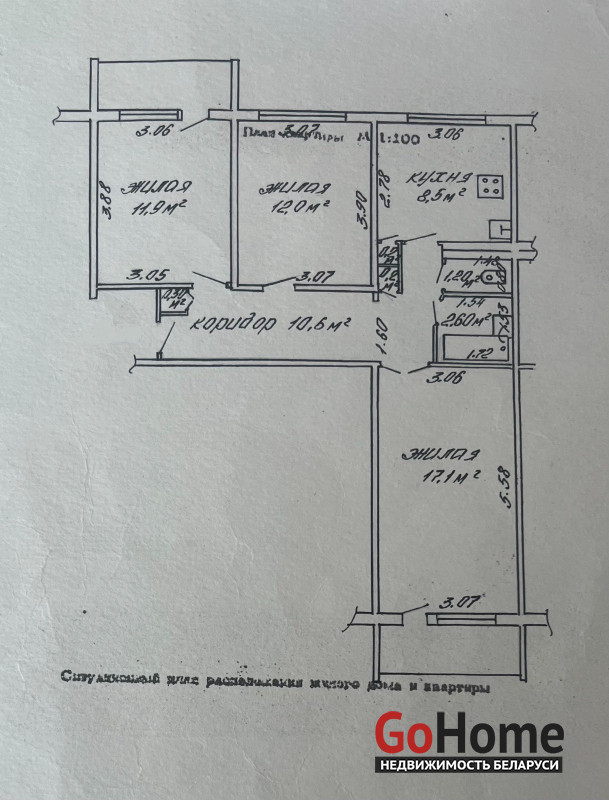 3.06
3.07
План квартиры М 1:100
3.06
3.88
жилая
11,9 м²
жилая
12,0 м²
3.90
2.78
кухня
8,5 м²
3.05
3.07
1,20 м²
0,30
м²
коридор 10,6 м²
1.60
1.54
2,60 м²
1.72
3.06
жилая
17,1 м²
5.58
3.07
Ситуационный план расположения жилого дома и квартиры
GoHome
НЕДВИЖИМОСТЬ БЕЛАРУСИ